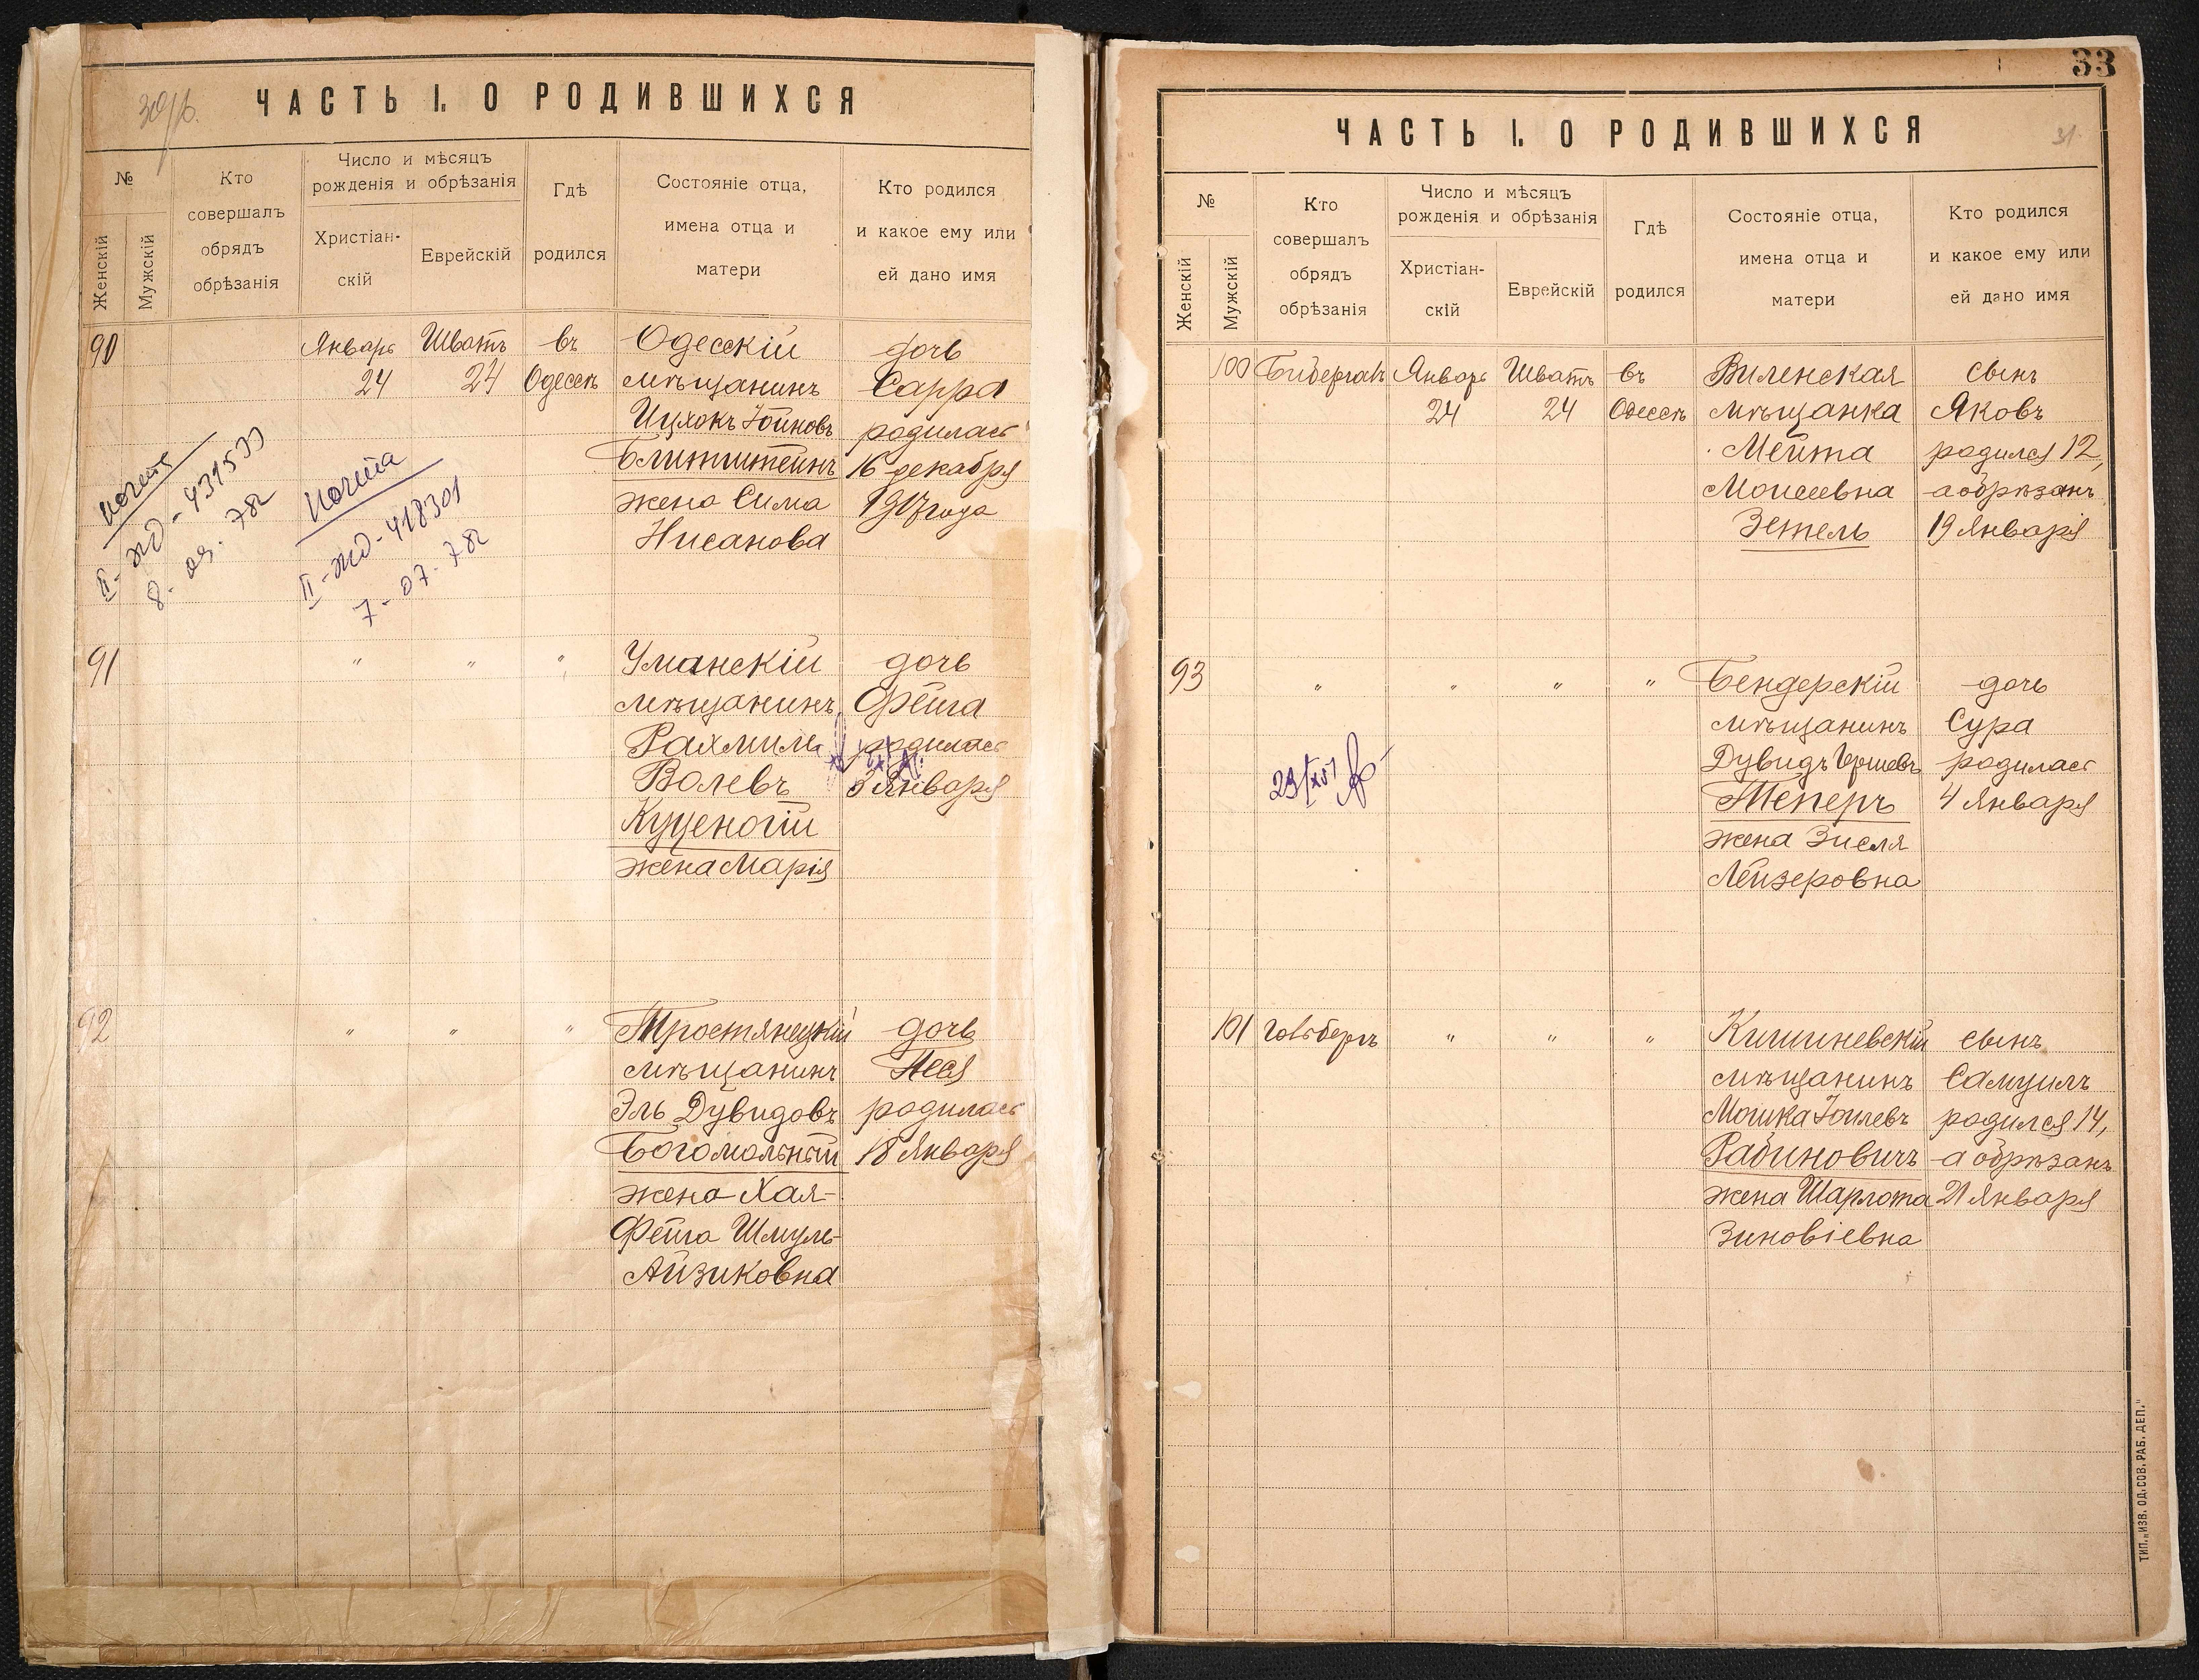 30/б.
ЧАСТЬ I. О РОДИВШИХСЯ
№
Женскій
Мужскій
Кто
совершалъ
обрядъ
обрѣзанія
Число и мѣсяцъ
рожденія и обрѣзанія
Христіан-
скій
Еврейскій
Гдѣ
родился
Состояніе отца,
имена отца и
матери
Кто родился
и какое ему или
ей дано имя
90 Январь Шватъ въ Одесскій дочь
24 24 Одессѣ мѣщанинъ Сарра
Ицхокъ Іойновъ родилась
Блитштейнъ 16 декабря
жена Сима 1917 года
Нисанова
II-жд-431533
8-09-78г
II-жд-418301
7-07-78г
91 " " " Уманскій дочь
мѣщанинъ Фейга
Рахмиль родилась
Волевъ 3 Января
Куценогій
жена Марія
92 " " " Тростянецкій дочь
мѣщанинъ Песя
Эль Дувидовъ родилась
Богомольный 18 Января
жена Хая-
Фейга Шмуль-
Айзиковна
33
31
ЧАСТЬ I. О РОДИВШИХСЯ
№
Женскій
Мужскій
Кто
совершалъ
обрядъ
обрѣзанія
Число и мѣсяцъ
рожденія и обрѣзанія
Христіан-
скій
Еврейскій
Гдѣ
родился
Состояніе отца,
имена отца и
матери
Кто родился
и какое ему или
ей дано имя
100 Бибергалъ Январь Шватъ въ Виленская сынъ
24 24 Одессѣ мѣщанка Яковъ
Мейта родился 12,
Моисеевна а обрѣзанъ
Зетель 19 Января
93 " " " " Бендерскій дочь
мѣщанинъ Сура
Дувидъ Гершевъ родилась
Теперъ 4 Января
жена Зисля
Лейзеровна
101 Гольдбергъ " " " Кишиневскій сынъ
мѣщанинъ Самуилъ
Мошка Іоилевъ родился 14,
Рабиновичъ а обрѣзанъ
жена Шарлота 21 Января
Зиновіевна
ТИП. „ИЗВ. ОД. СОВ. РАБ. ДЕП."